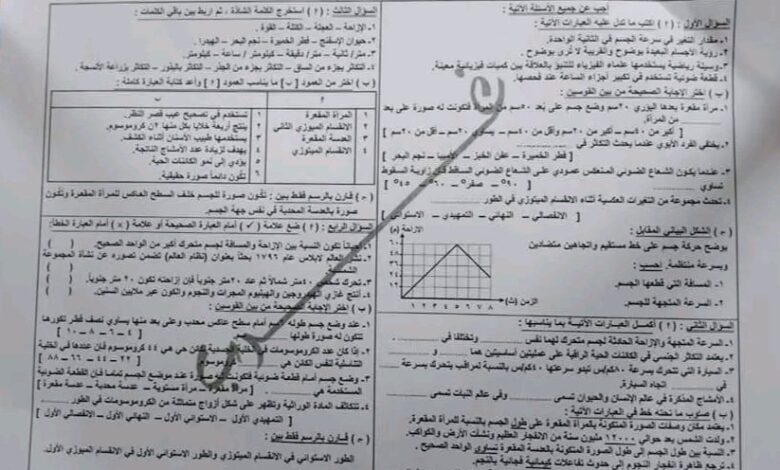 أجب عن جميع الأسئلة الآتية :
السؤال الأول : ( ٢ ) اكتب ما تدل عليه العبارات الآتية :
١- مقدار التغير في سرعة الجسم في الثانية الواحدة.
٢- رؤية الأجسام البعيدة بوضوح والقريبة لا ترى بوضوح .
٣- وسيلة رياضية يستخدمها علماء الفيزياء للتنبؤ بالعلاقة بين كميات فيزيائية معينة.
٤- قطعة ضوئية تستخدم في تكبير أجزاء الساعة عند فحصها.
( ب ) اختر الإجابة الصحيحة من بين القوسين :
١- مرآة مقعرة بعدها البؤري ٢٠سم وضع جسم على بُعد ٥٠سم من المرآة فتكونت له صورة على بعد
من المرآة. [ أكبر من ٤٠سم – أقل من ٤٠سم – يساوي ٢٠سم – أقل من ٢٠سم ]
٢- يختفي الفرد الأبوي عندما يحدث التكاثر في
[ فطر الخميرة – عفن الخبز – الأميبا – نجم البحر ]
٣- عندما يكون الشعاع الضوئي المنعكس عمودي على الشعاع الضوئي الساقط فإن زاوية السقوط
تساوي [ ٩٠° – صفر° – ٦٠° – ٤٥° ]
٤- تحدث مجموعة من التغيرات العكسية أثناء الانقسام الميتوزي في الطور
[ الانفصالي – النهائي – التمهيدي – الاستوائي ]
( جـ ) الشكل البياني المقابل :
يوضح حركة جسم على خط مستقيم واتجاهين متضادين
وبسرعة منتظمة. احسب :
١- المسافة التي قطعها الجسم.
٢- السرعة المتجهة للجسم.
الإزاحة (م)
٦٠
١ ٢ ٣ ٤ ٥ ٦ ٧ ٨
الزمن (ث)
السؤال الثاني : ( ٢ ) أكمل العبارات الآتية بما يناسبها :
١- السرعة المتجهة والإزاحة الحادثة لجسم متحرك لهما نفس وتختلفا في
٢- يعتمد التكاثر الجنسي في الكائنات الحية الراقية على عمليتين أساسيتين هما و
٣- السيارة التي تتحرك بسرعة ٨٠كم/س تبدو سرعتها ٤٠كم/س بالنسبة لمراقب يتحرك بسرعة
في اتجاه السيارة.
٤- الأمشاج المذكرة في عالم الإنسان والحيوان تسمى وفي عالم النبات تسمى
( ب ) صوب ما تحته خط في العبارات الآتية :
١- يعتمد نوع وصفات الصورة المتكونة بالمرآة المقعرة على طول الجسم بالنسبة للمرآة المقعرة.
٢- ولدت الشمس بعد حوالي ١٢٠٠٠ مليون سنة من الانفجار العظيم ونشأت الأرض والكواكب.
٣- تكون النسبة بين طول الجسم إلى طول الصورة المتكونة بالعدسة المقعرة تساوي الواحد الصحيح.
ظاهرة انفجار النجوم إلى حدوث تفاعلات كيميائية فجائية بالنجم.
السؤال الثالث : ( ٢ ) استخرج الكلمة الشاذة ، ثم اربط بين باقي الكلمات :
١- الإزاحة – العجلة – الكتلة – القوة.
٢- حيوان الإسفنج – فطر الخميرة – نجم البحر – الهيدرا.
٣- متر / ثانية – متر/ دقيقة – كيلومتر / ساعة – كيلومتر.
٤- التكاثر بالساق – التكاثر بجزء من الجذر – التكاثر بالبذور – التكاثر بزراعة الأنسجة.
( ب ) اختر من العمود [ ب ] ما يناسب العمود [ ٢ ] وأعد كتابة العبارة كاملة :
٢ ب
١ المرآة المقعرة
٢ الانقسام الميوزي الثاني
٣ العدسة المقعرة
٤ الانقسام الميتوزي
١ تستخدم في تصحيح عيب قصر النظر.
٢ ينتج أربعة خلايا بكل منها ن كروموسوم.
٣ يستخدمها طبيب الأسنان أثناء الكشف.
٤ يهدف لزيادة عدد الأمشاج الناتجة.
٥ يؤدي إلى نمو الكائنات الحية.
٦ تكون دائماً صورة حقيقية.
( جـ ) قارن بالرسم فقط بين : تكون صورة للجسم خلف السطح العاكس للمرآة المقعرة وتكون
صورة بالعدسة المحدبة في نفس جهة الجسم.
السؤال الرابع : ( ٢ ) ضع علامة ( ✓ ) أمام العبارة الصحيحة أو علامة ( × ) أمام العبارة الخطأ:
١- أحياناً تكون النسبة بين الإزاحة والمسافة لجسم متحرك أكبر من الواحد الصحيح. ( )
٢- نشر العالم لابلاس عام ١٧٩٦ بحثاً بعنوان (نظام العالم) تضمن تصوره عن نشأة المجموعة
الشمسية. ( )
٣- تحرك شخص ٤٠متر شمالاً ثم عاد ٢٠متر جنوباً فإن إزاحته تكون ٢٠ متر جنوباً. ( )
٤- أنتج غازي الهيدروجين والهيليوم المجرات والنجوم والكون عبر ملايين السنين. ( )
( ب ) اختر الإجابة الصحيحة من بين القوسين :
١- عند وضع جسم طوله سم أمام سطح عاكس محدب وعلى بعد منها يساوي نصف قطر تكورها
تكون له صورة طولها [ ٤ – ٦ – ٨ – ١٠ ]
٢- إذا كان عدد الكروموسومات في الخلية الجسدية لكائن حي هي ٤٤ كروموسوم فإن عددها في الخلية
التناسلية لنفس الكائن هي [ ٢٢ – ٤٤ – ٦٦ – ٨٨ ]
٣- وضع جسم أمام قطعة ضوئية فتكونت له صورة عند موضع الجسم تماماً فإن القطعة الضوئية
المستخدمة هي [ مرآة مقعرة – مرآة مستوية – عدسة محدبة – عدسة مقعرة ]
٤- تتكاثف المادة الوراثية وتظهر على شكل أزواج متماثلة من الكروموسومات في الطور
[ التمهيدي الأول – الاستوائي الأول – النهائي الأول – الانفصالي الأول ]
( جـ ) قارن بالرسم فقط بين :
الطور الاستوائي في الانقسام الميتوزي والطور الاستوائي الأول في الانقسام الميوزي الأول.